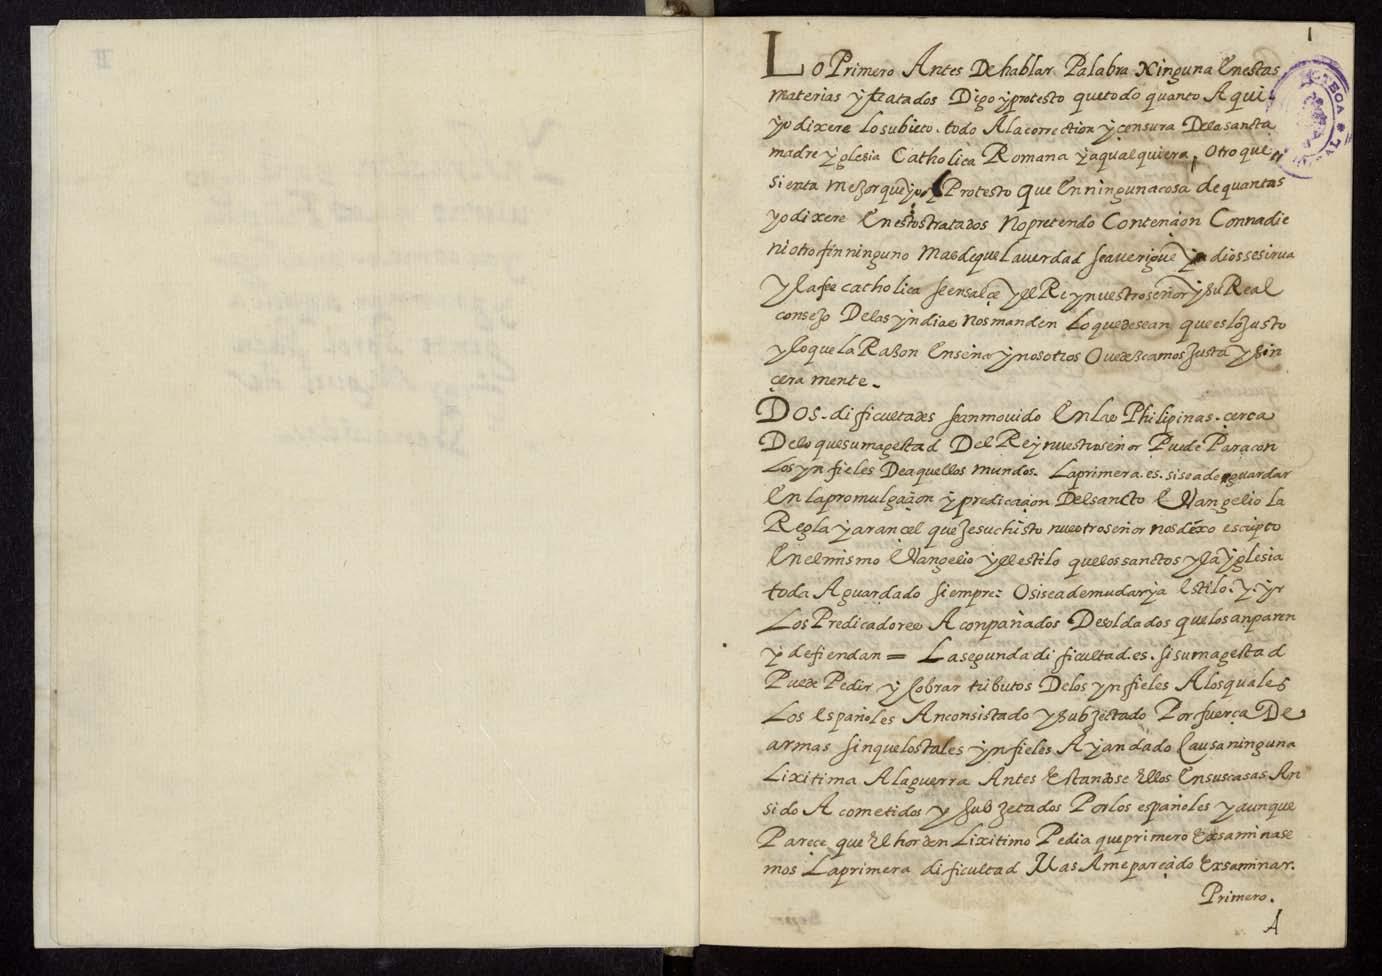 1
Lo Primero Antes De hablar Palabra Ninguna Enestas
materias y tratados Digo y protesto que todo quanto Aqui
yo dixere lo subieto. todo Ala correction y censura Dela sancta
madre yglesia Catholica Romana y aqualquiera, otro que
sienta mejor que yo y Protesto Que En ninguna cosa de quantas
yo dixere En estos tratados No pretendo Contencion Con nadie
ni otro fin ninguno Mas de que la uerdad se averigue y a dios se sirua
y la fee catholica se ensalce y el Rey nuestro señor y su Real
consejo Delas yndias Nos manden Lo que desean que es lo Justo
y lo que la Razon Enseña y nosotros Ouedezcamos Justa y sin
cera mente.
Dos. dificultades se an mouido En las Philipinas. cerca
Delo que su magestad Del Rey nuestro señor Puede Para con
Los ynfieles De aquellos mundos. La primera. es. si se a de guardar
En la promulgacion y predicacion Del sancto Evangelio la
Regla y arancel que Jesuchisto nuestro señor nos dexo escripto
En el mismo Evangelio y el estilo que los sanctos y la yglesia
toda A guardado siempre: O si se a de mudar ya Estilo. y. yr
Los Predicadores Aconpañados De soldados que los anparen
y defiendan = La segunda dificultad. es. si su magestad
Puede Pedir y Cobrar tributos Delos ynfieles A los quales
Los españoles An conquistado y subjectado Por fuerça De
armas sin que los tales ynfieles Ayan dado Causa ninguna
Lixitima A la guerra Antes Estandose Ellos En sus casas An
sido Acometidos y subjetados Por los españoles y aunque
Parece que El horden Lixitimo Pedia que primero Exsaminase
mos La primera dificultad Mas A me parecido Exsaminar.
Primero.
A